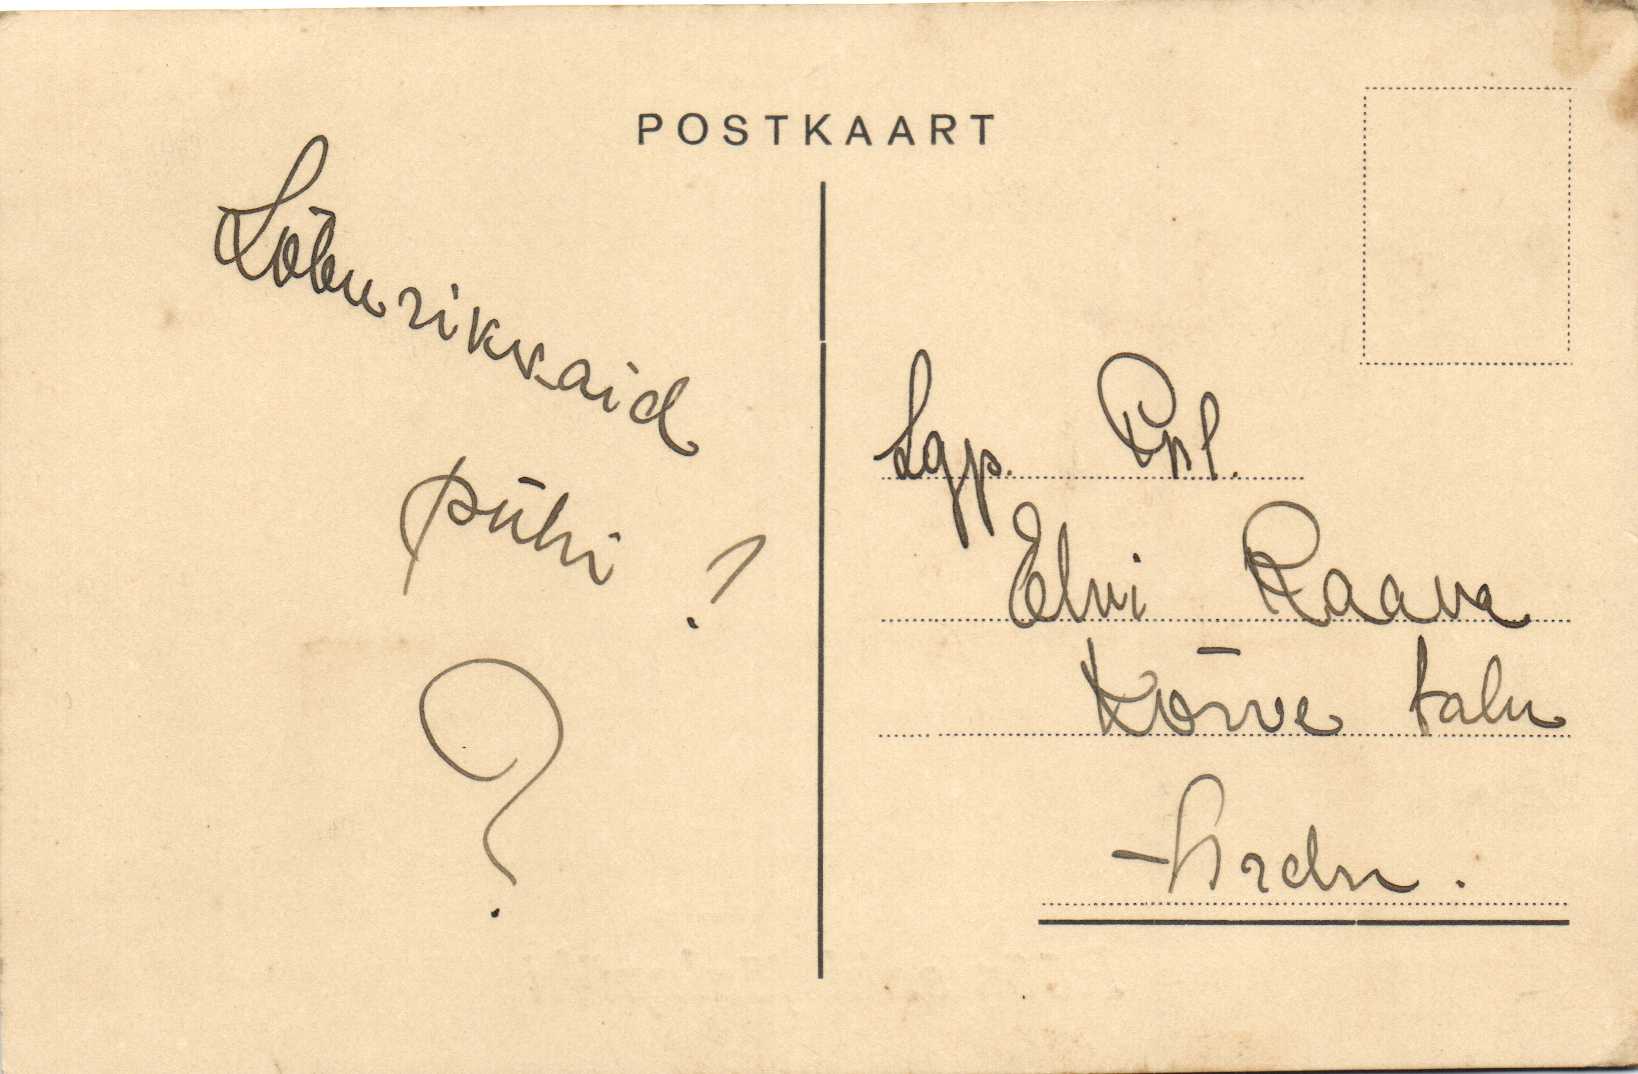 POSTKAART
Lõburikvaid
pühi !
?
Lgp. Prl.
Elvi Raava
Kõrve talu
Ardu.